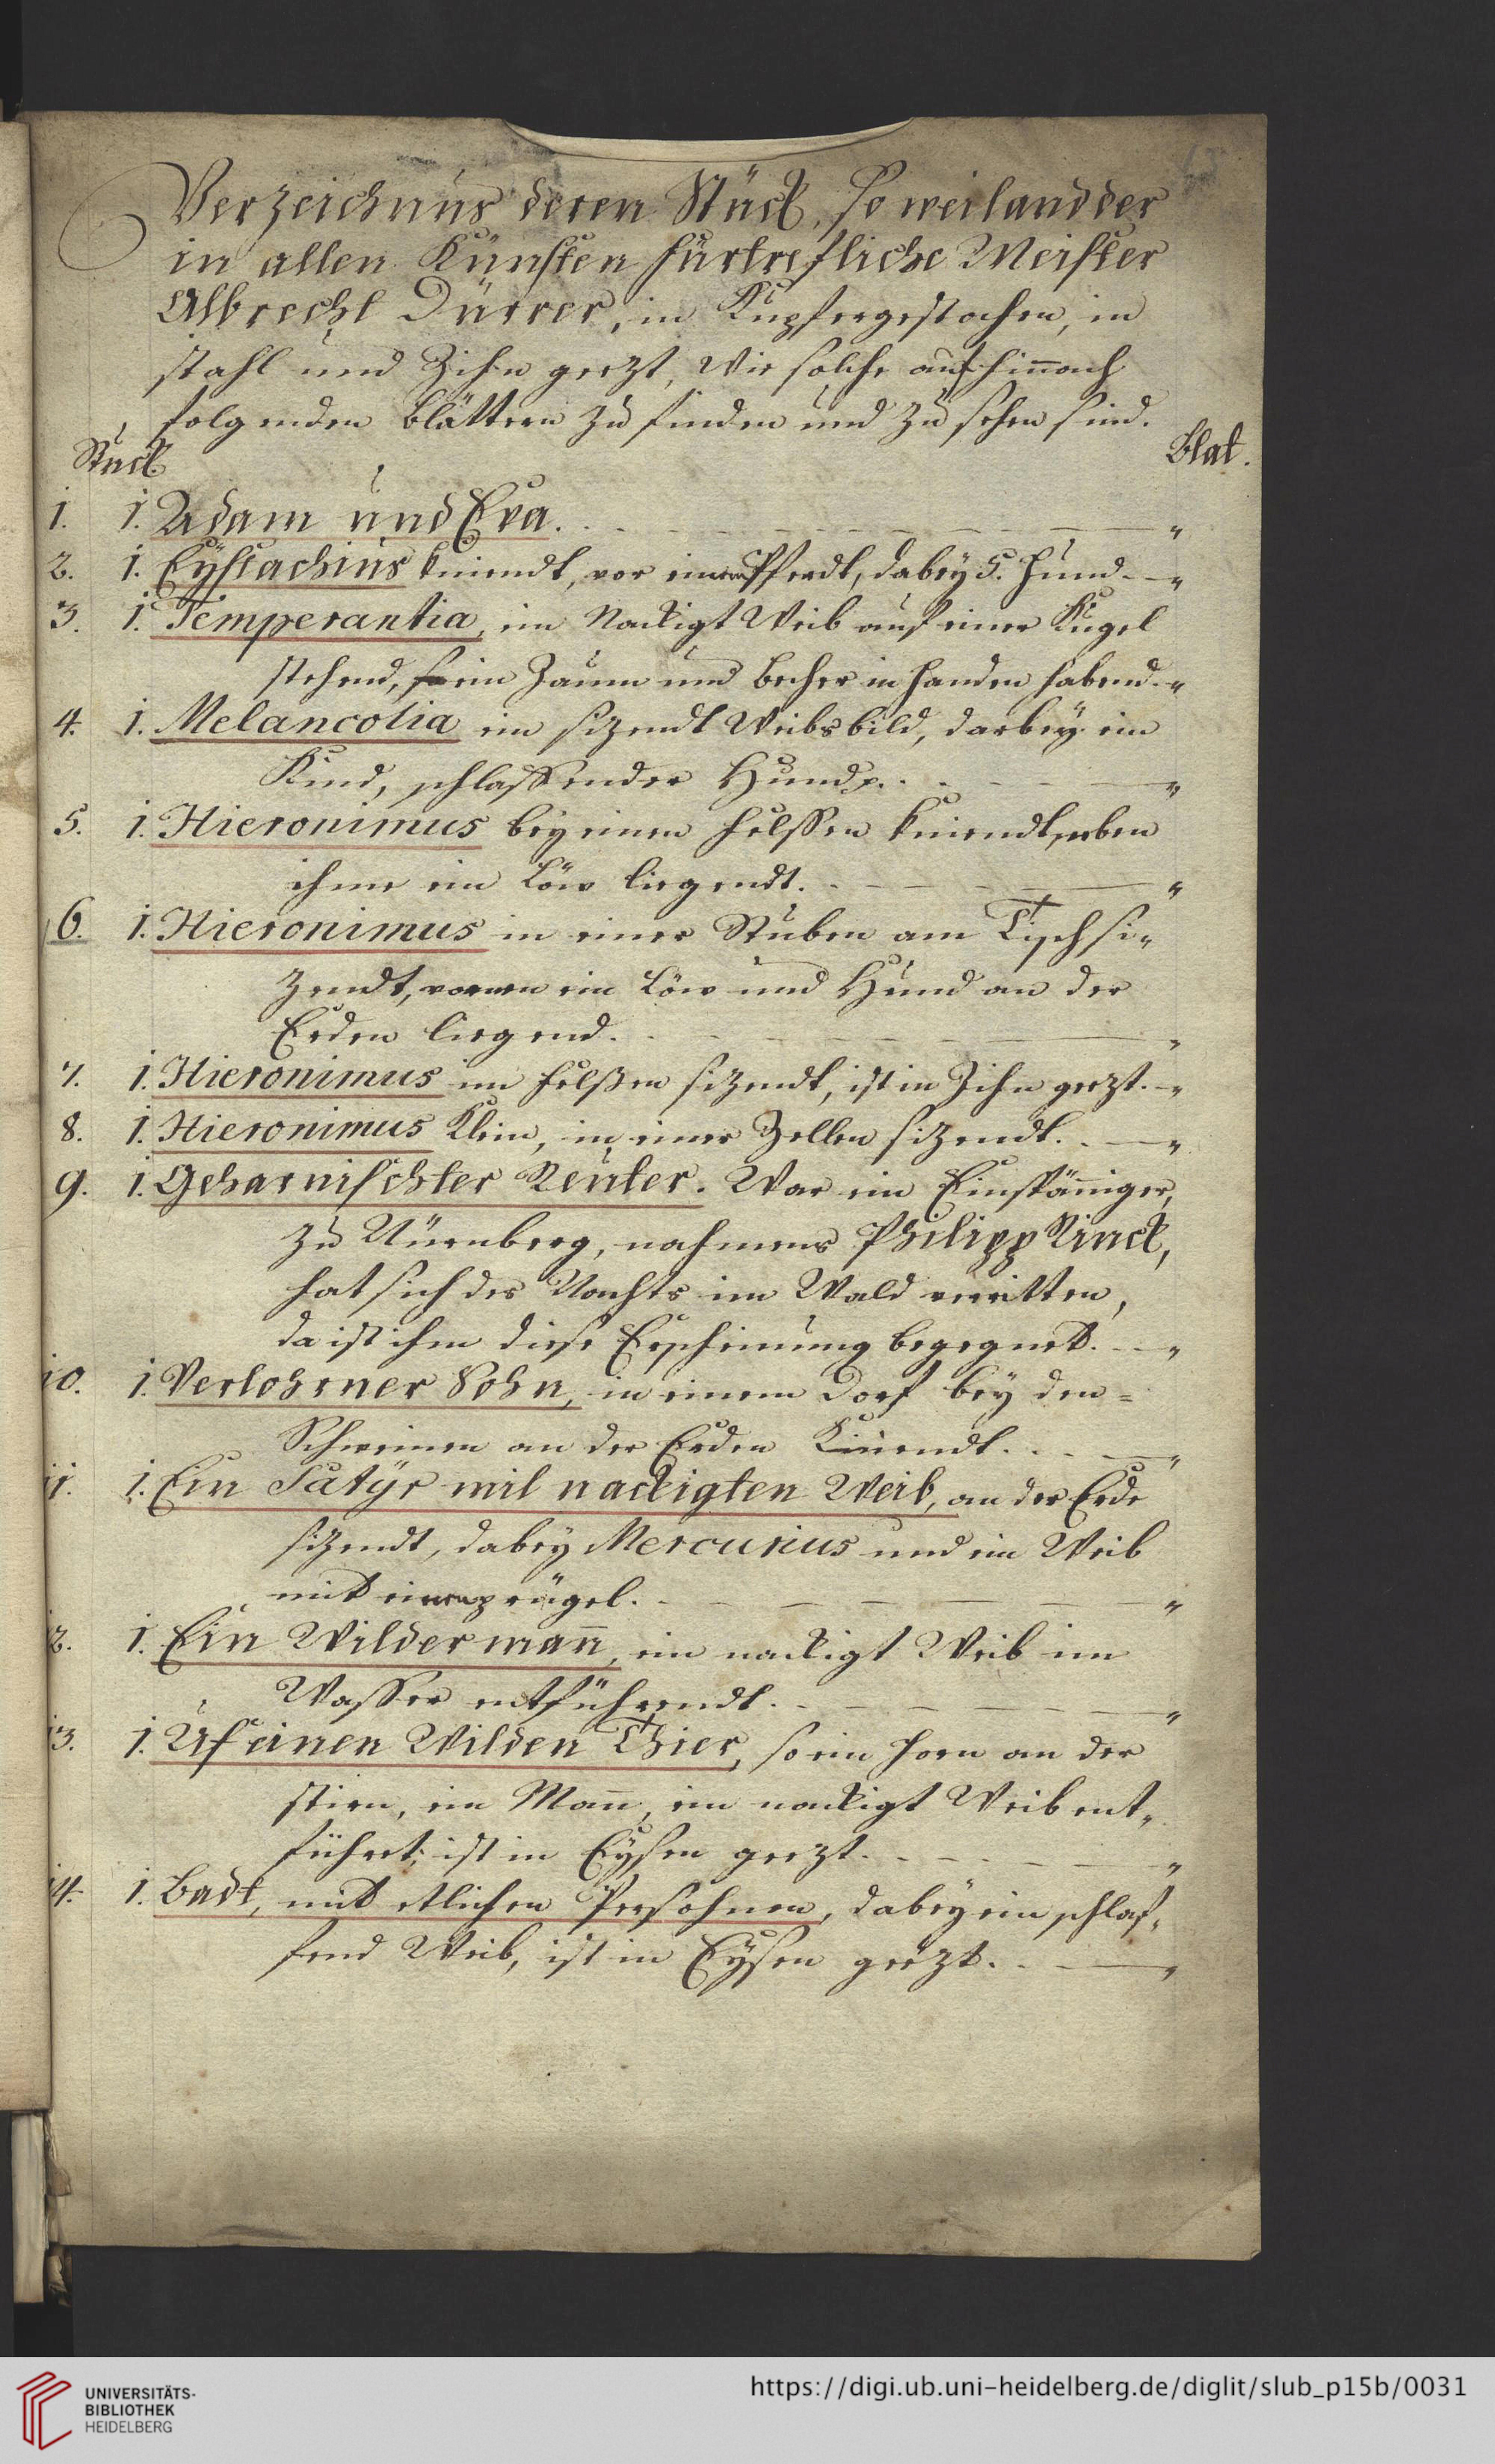 Verzeichnus deren Stück, so weiland der
in allen Künsten fürtrefliche Meister
Albrecht Dürrer, in Kupfer gestochen, in
stahl und Zihn geezt, wie solche auf hinnach
folgenden Blättern zu finden und zu sehen sind.
Stuck
Blat.
1. 1. Adam und Eva. . - - - - - - - "
2. 1. Eystachius kniendt, vor einem Pferdt, dabey 5. Hund. - - "
3. 1. Temperantia, ein Nackigt Weib auf einer Kugel
stehend, so ein Zaum und Becher in Handen habend. - "
4. 1. Melancolia ein sizendt Weibsbild, darbey ein
Kind, schlaffender Hund . . - - - - "
5. 1. Hieronimus bey einen Felssen kniendt, neben
ihme ein Löw liegendt. . - - - - - "
6. 1. Hieronimus in einer Stuben am Tisch si„
zendt, vornen ein Löw und Hund an der
Erden liegend. . - - - - - - "
7. 1. Hieronimus im Felßen sizendt, ist in Zihn geezt. - "
8. 1. Hieronimus Klein, in einer Zellen sizendt. . - "
9. 1. Geharnischter Reuter. War ein Einspänniger,
zu Nürnberg, nahmens Philipp Rinck,
hat sich des Nachts im Wald verritten,
da ist ihm diese Erscheinung begegnet. - - "
10. 1. Verlohrner Sohn, in einem Dorf bey den =
Schweinen an der Erden Kniendt. . - - "
11. 1. Ein Satÿr mit nackigten Weib, an der Erde
sizendt, dabey Mercurius und ein Weib
mit einem prügel. . - - - - - - "
12. 1. Ein Wilder mann, ein nackigt Weib im
Wasser entführendt. . - - - - - "
13. 1. Uf einen Wilden Thier, so ein Horn an der
stirn, ein Mann, ein nackigt Weib ent„
führet; ist in Eysen geezt. . - - - - "
14. 1. Badt, mit etlichen Persohnen, dabey ein schlaf„
fend Weib, ist in Eysen geëzt. . - - "
UNIVERSITÄTS-
BIBLIOTHEK
HEIDELBERG
https://digi.ub.uni-heidelberg.de/diglit/slub_p15b/0031